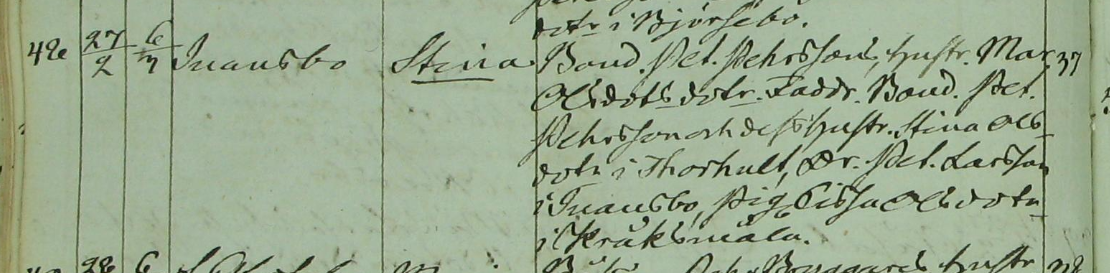 dotr i Bjørsebo.
42 27/2 6/3 Ivansbo Stina Bond. Pet. Pehrssons, hustr. Mar. 37
Olsdots dotr. Faddr. Bond. Pet.
Pehrsson och dess hustr. Stina Ols
dotr i Thorhult, Dr. Pet. Larsson
i Ivansbo, Pig. Cissa Olsdotr
i Kråksmåla.